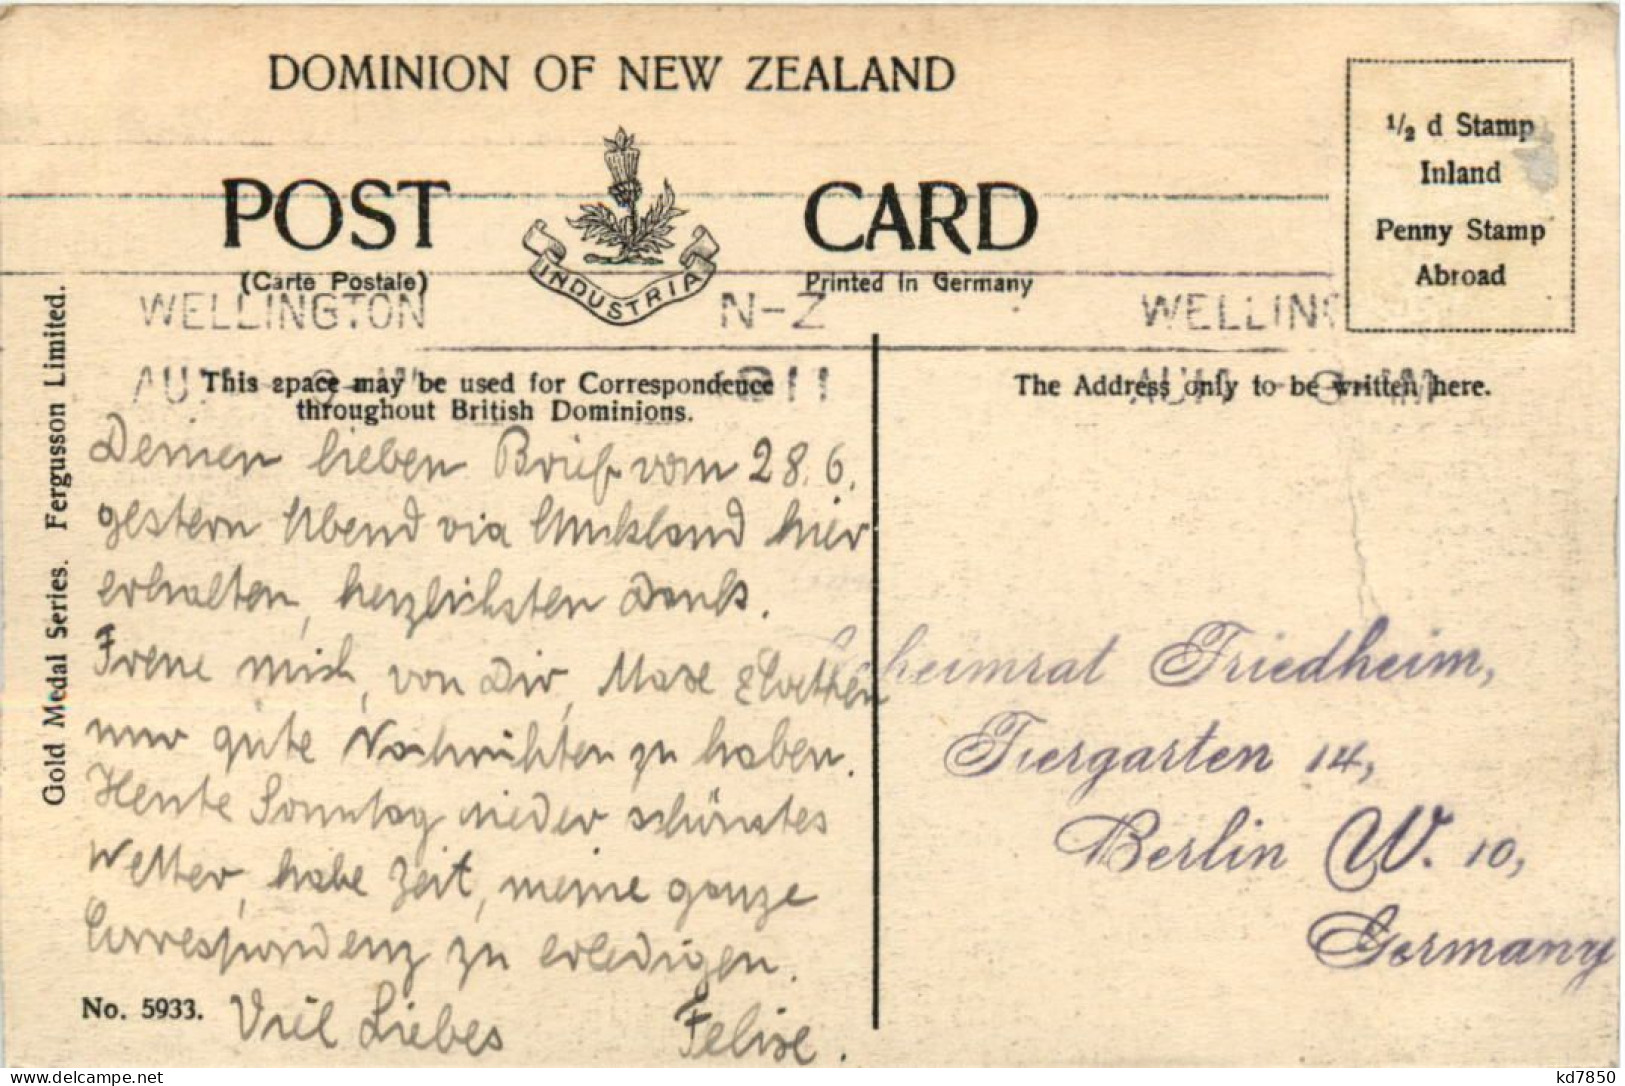 DOMINION OF NEW ZEALAND
POST CARD
(Carte Postale)
INDUSTRIA
Printed in Germany
1/2 d Stamp
Inland
Penny Stamp
Abroad
WELLINGTON N-Z WELLIN
This space may be used for Correspondence
throughout British Dominions.
The Address only to be written here.
Gold Medal Series. Fergusson Limited.
Deinen lieben Brief vom 28.6.
gestern Abend via Auckland hier
erhalten, herzlichsten Dank.
Freue mich, von Dir, Maxe
nur gute Nachrichten zu haben.
Heute Sonntag wieder schönstes
Wetter, habe Zeit, meine ganze
Correspondenz zu erledigen.
Viel Liebes Felixe.
No. 5933.
Geheimrat Friedheim,
Tiergarten 14,
Berlin W. 10,
Germany
kd7850